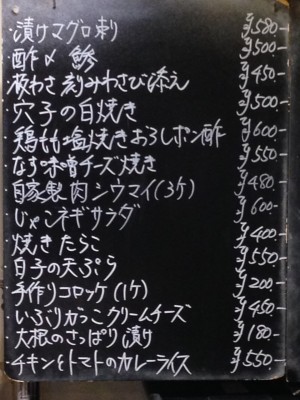 ・漬けマグロ刺 ¥580-
・酢〆鯵 ¥500-
・板わさ 刻みわさび添え ¥450-
・穴子の白焼き ¥500-
・鶏もも塩焼きおろしポン酢 ¥600-
・なす味噌チーズ焼き ¥550-
・自家製肉シウマイ(3ケ) ¥480-
・じゃこネギサラダ ¥600-
・焼きたらこ ¥400-
・白子の天ぷら ¥550-
・手作りコロッケ(1ケ) ¥200-
・いぶりがっこクリームチーズ ¥450-
・大根のさっぱり漬け ¥180-
・チキンとトマトのカレーライス ¥550-